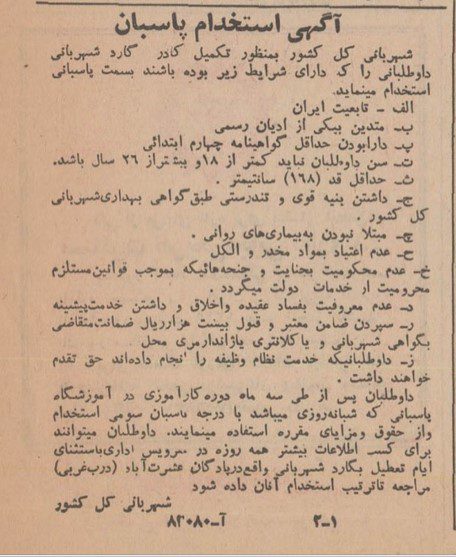 آگهی استخدام پاسبان
شهربانی کل کشور بمنظور تکمیل کادر گارد شهربانی
داوطلبانی را که دارای شرایط زیر بوده باشند بسمت پاسبانی
استخدام مینماید.
الف ـ تابعیت ایران
ب ـ متدین بیکی از ادیان رسمی
پ ـ دارابودن حداقل گواهینامه چهارم ابتدائی
ت ـ سن داوطلبان نباید کمتر از ۱۸ و بیشتر از ۲۶ سال باشد.
ث ـ حداقل قد (۱۶۸) سانتیمتر .
ج ـ داشتن بنیه قوی و تندرستی طبق گواهی بهداری شهربانی
کل کشور .
چ ـ مبتلا نبودن به بیماری‌های روانی .
ح ـ عدم اعتیاد بمواد مخدر و الکل
خ ـ عدم محکومیت بجنایت و جنحه‌هائیکه بموجب قوانین مستلزم
محرومیت از خدمات دولت میگردد .
د ـ عدم معروفیت بفساد عقیده واخلاق و داشتن خدمت پیشینه
ر ـ سپردن ضامن معتبر و قبول بیست هزار ریال ضمانت متقاضی
بگواهی شهربانی و یا کلانتری یا ژاندارمری محل
ز ـ داوطلبانیکه خدمت نظام وظیفه را انجام داده‌اند حق تقدم
خواهند داشت .
داوطلبان پس از طی سه ماه دوره کارآموزی در آموزشگاه
پاسبانی که شبانه‌روزی میباشد با درجه پاسبان سومی استخدام
واز حقوق ومزایای مقرره استفاده مینمایند. داوطلبان میتوانند
برای کسب اطلاعات بیشتر همه روزه در سرویس اداری باستثنای
ایام تعطیل بگارد شهربانی واقع در پادگان عشرت‌آباد (درب غربی)
مراجعه تا ترتیب استخدام آنان داده شود
شهربانی کل کشور
۲ـ۱ آـ۸۲۰۸۰